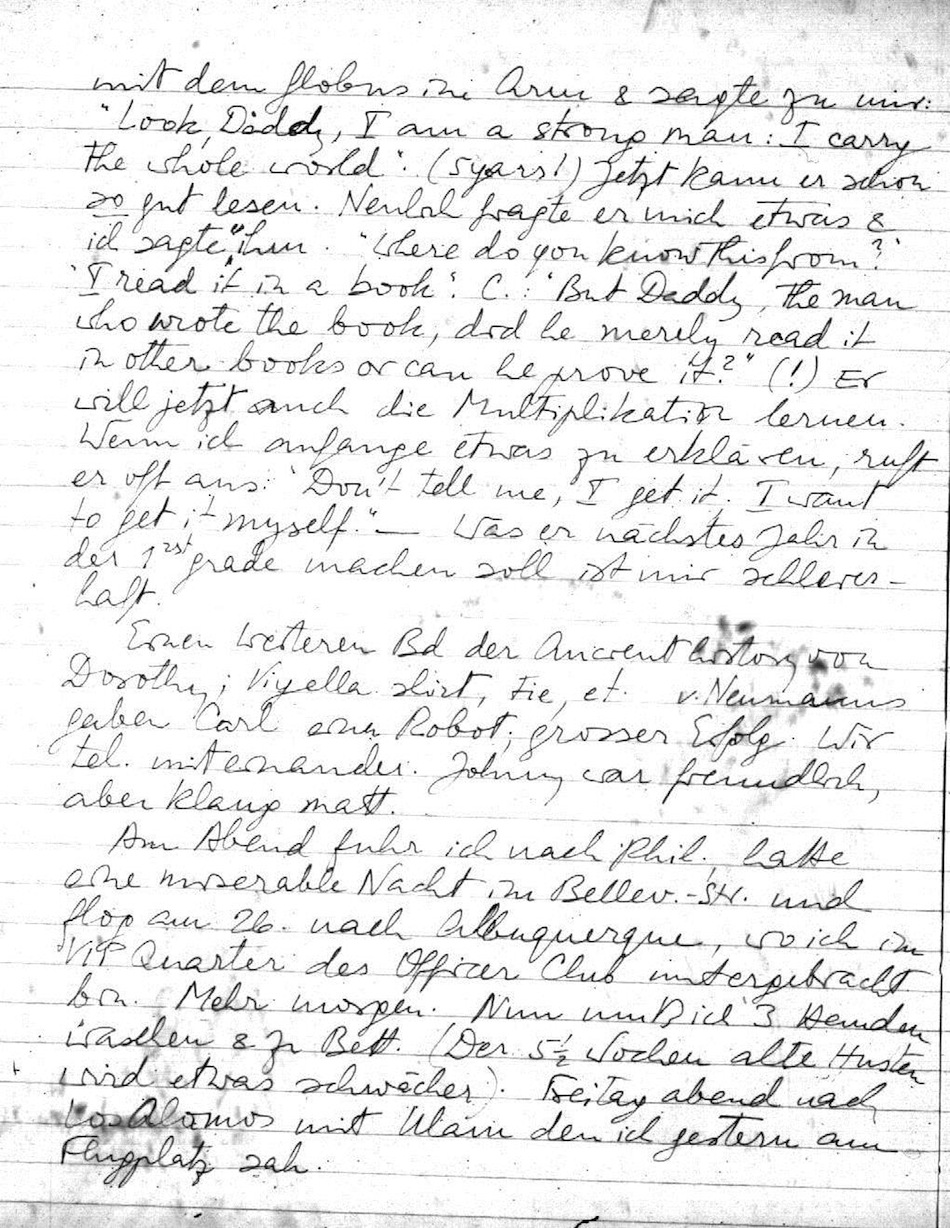 mit dem Globus im Arm & sagte zu mir:
"Look, Daddy, I am a strong man: I carry
the whole world". (5 years!) Jetzt kann er schon
so gut lesen. Neulich fragte er mich etwas &
ich sagte ihm. "Where do you know this from?"
"I read it in a book". C.: "But Daddy, the man
who wrote the book, did he merely read it
in other books or can he prove it?" (!) Er
will jetzt auch die Multiplikation lernen.
Wenn ich anfange etwas zu erklären, ruft
er oft aus: "Don't tell me, I get it. I want
to get it myself." — Was er nächstes Jahr in
der 1st grade machen soll ist mir schleier-
haft.
Einen weiteren Bd der Ancient history von
Dorothy; Viyella shirt, Tie, et. v. Neumanns
gaben Carl einen Robot; grosser Erfolg. Wir
tel. miteinander. Johnny war freundlich,
aber klang matt.
Am Abend fuhr ich nach Phil., hatte
eine miserable Nacht im Bellev.-Str. und
flog am 26. nach Albuquerque, wo ich im
VIP Quarter des Officer Club untergebracht
bin. Mehr morgen. Nun muß ich 3 Hemden
waschen & zu Bett. (Der 5½ Wochen alte Husten
wird etwas schwächer). Freitag abend nach
Los Alamos mit Ulam den ich gestern am
Flugplatz sah.